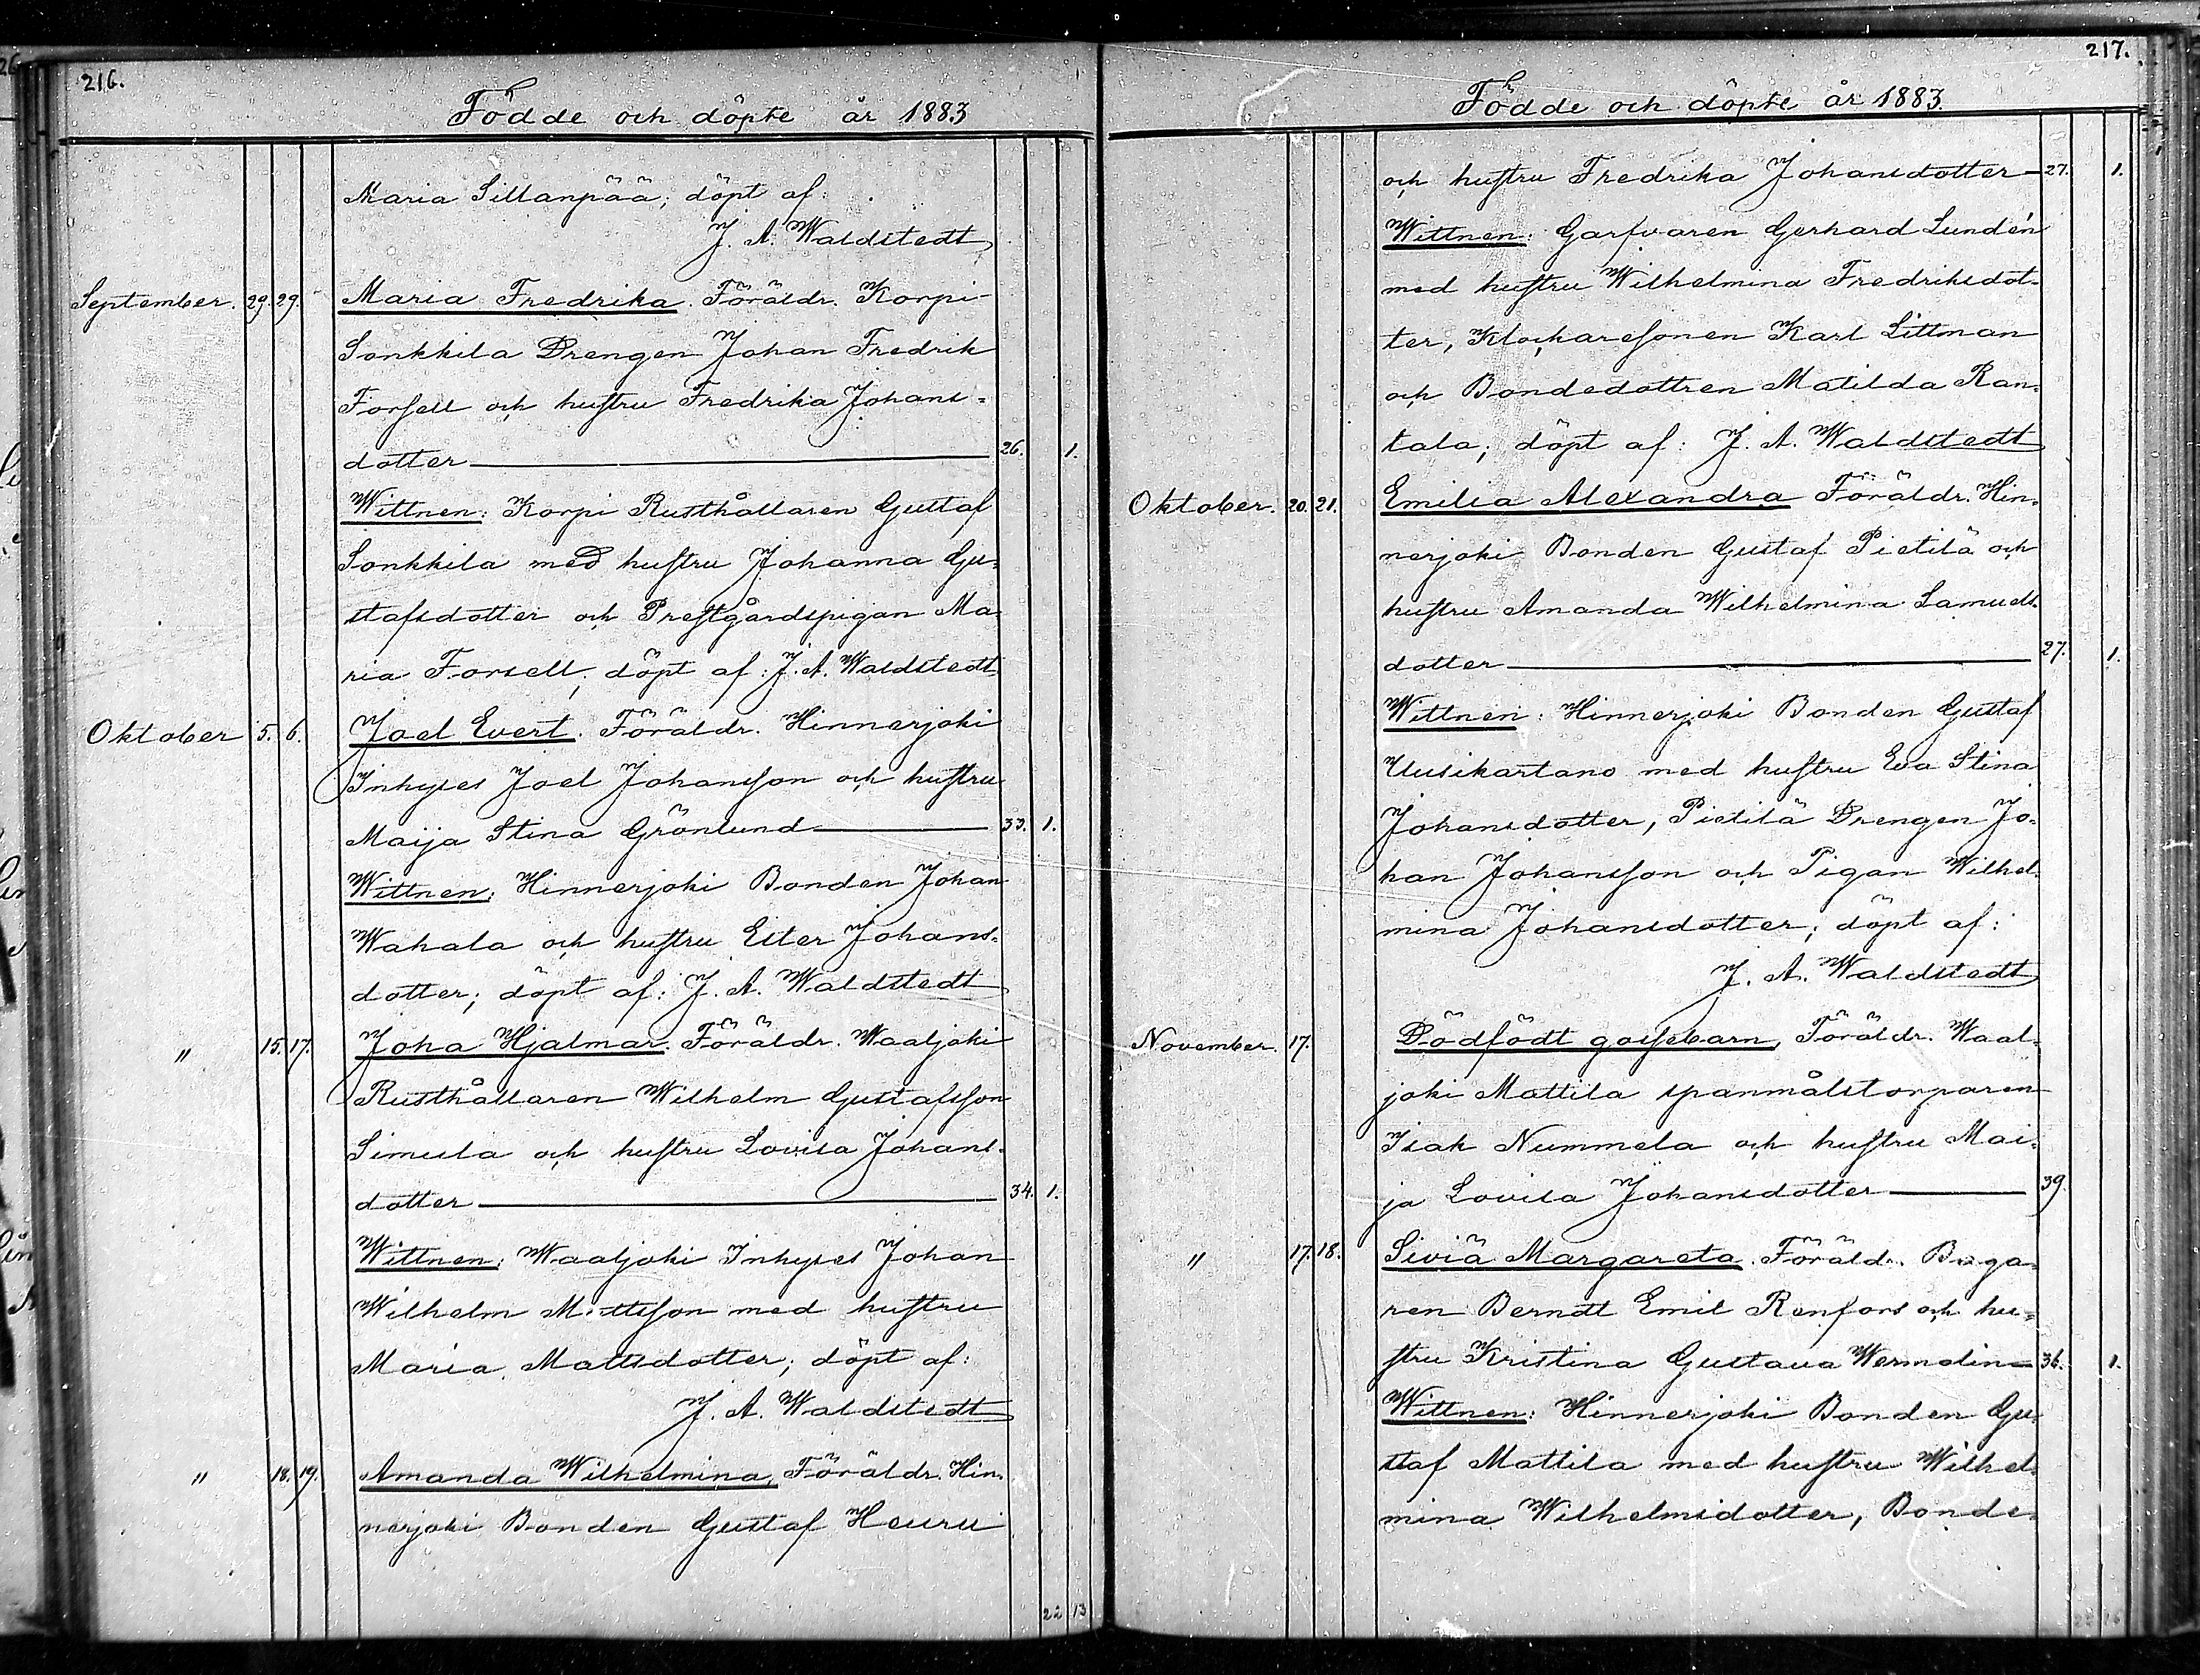 216.
Födde och döpte år 1883
Maria Sillanpää; döpt af:
J. A. Waldstedt
September. 29. 29. Maria Fredrika. Föräldr. Korpi
Sonkkila Drengen Johan Fredrik
Forsell och hustru Fredrika Johans-
dotter 26. 1.
Wittnen: Korpi Rusthållaren Gustaf
Sonkkila med hustru Johanna Gu-
stafsdotter och Prestgårdspigan Ma-
ria Forsell; döpt af: J. A. Waldstedt
Oktober 5. 6. Joel Evert. Föräldr. Hinnerjoki
Inhyses Joel Johansson och hustru
Maija Stina Grönlund 33. 1.
Wittnen: Hinnerjoki Bonden Johan
Wahala och hustru Ester Johans-
dotter; döpt af: J. A. Waldstedt
" 15. 17. Joha Hjalmar. Föräldr. Waaljoki
Rusthållaren Wilhelm Gustafsson
Simula och hustru Lovisa Johans-
dotter 34. 1.
Wittnen: Waaljoki Inhyses Johan
Wilhelm Mattsson med hustru
Maria Mattsdotter; döpt af:
J. A. Waldstedt
" 18. 19. Amanda Wilhelmina, Föräldr. Hin-
nerjoki Bonden Gustaf Heuru
22 13
217.
Födde och döpte år 1883
och hustru Fredrika Johansdotter 27. 1.
Wittnen: Garfvaren Gerhard Lundén
med hustru Wilhelmina Fredriksdot-
ter, Klockaresonen Karl Littman
och Bondedottren Matilda Ran-
tala; döpt af: J. A. Waldstedt
Oktober. 20. 21. Emilia Alexandra Föräldr. Hin-
nerjoki Bonden Gustaf Pietilä och
hustru Amanda Wilhelmina Samuels-
dotter 27. 1.
Wittnen: Hinnerjoki Bonden Gustaf
Uusikartano med hustru Eva Stina
Johansdotter, Pietilä Drengen Jo-
han Johansson och Pigan Wilhel-
mina Johansdotter; döpt af:
J. A. Waldstedt
November. 17. Dödfödt gossebarn, Föräldr. Waal-
joki Mattila spanmålstorparen
Isak Nummela och hustru Mai-
ja Lovisa Johansdotter 39.
" 17. 18. Siviä Margareta. Föräldr. Baga-
ren Berndt Emil Renfors och hu-
stru Kristina Gustava Wermelin 36. 1.
Wittnen: Hinnerjoki Bonden Gu-
staf Mattila med hustru Wilhel-
mina Wilhelmsdotter, Bonde-